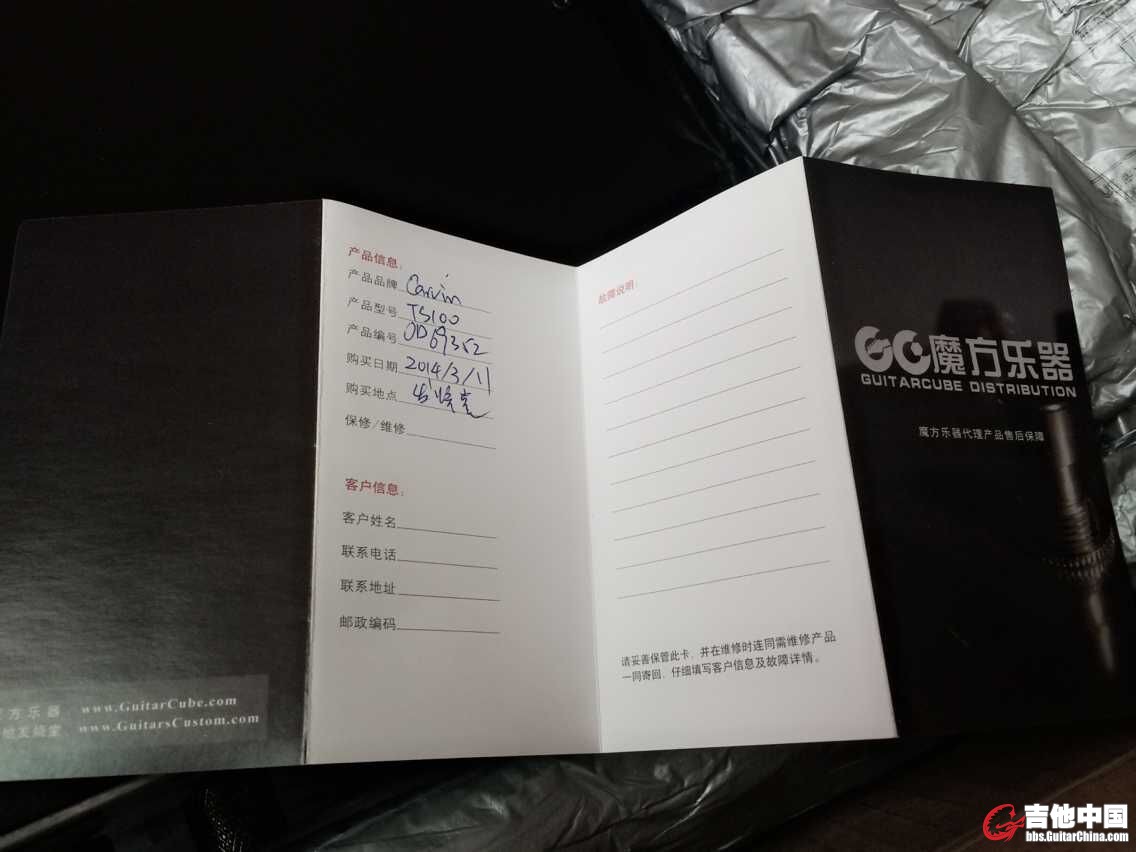 产品信息:
产品品牌 Carvin
产品型号 TS100
产品编号 0D69352
购买日期 2014/3/11
购买地点 发烧室
保修/维修
客户信息:
客户姓名
联系电话
联系地址
邮政编码
故障说明:
请妥善保管此卡，并在维修时连同需维修产品
一同寄回，仔细填写客户信息及故障详情。
GC魔方乐器
GUITARCUBE DISTRIBUTION
魔方乐器代理产品售后保障
方乐器 www.GuitarCube.com
他发烧室 www.GuitarsCustom.com
吉他中国
bbs.GuitarChina.com